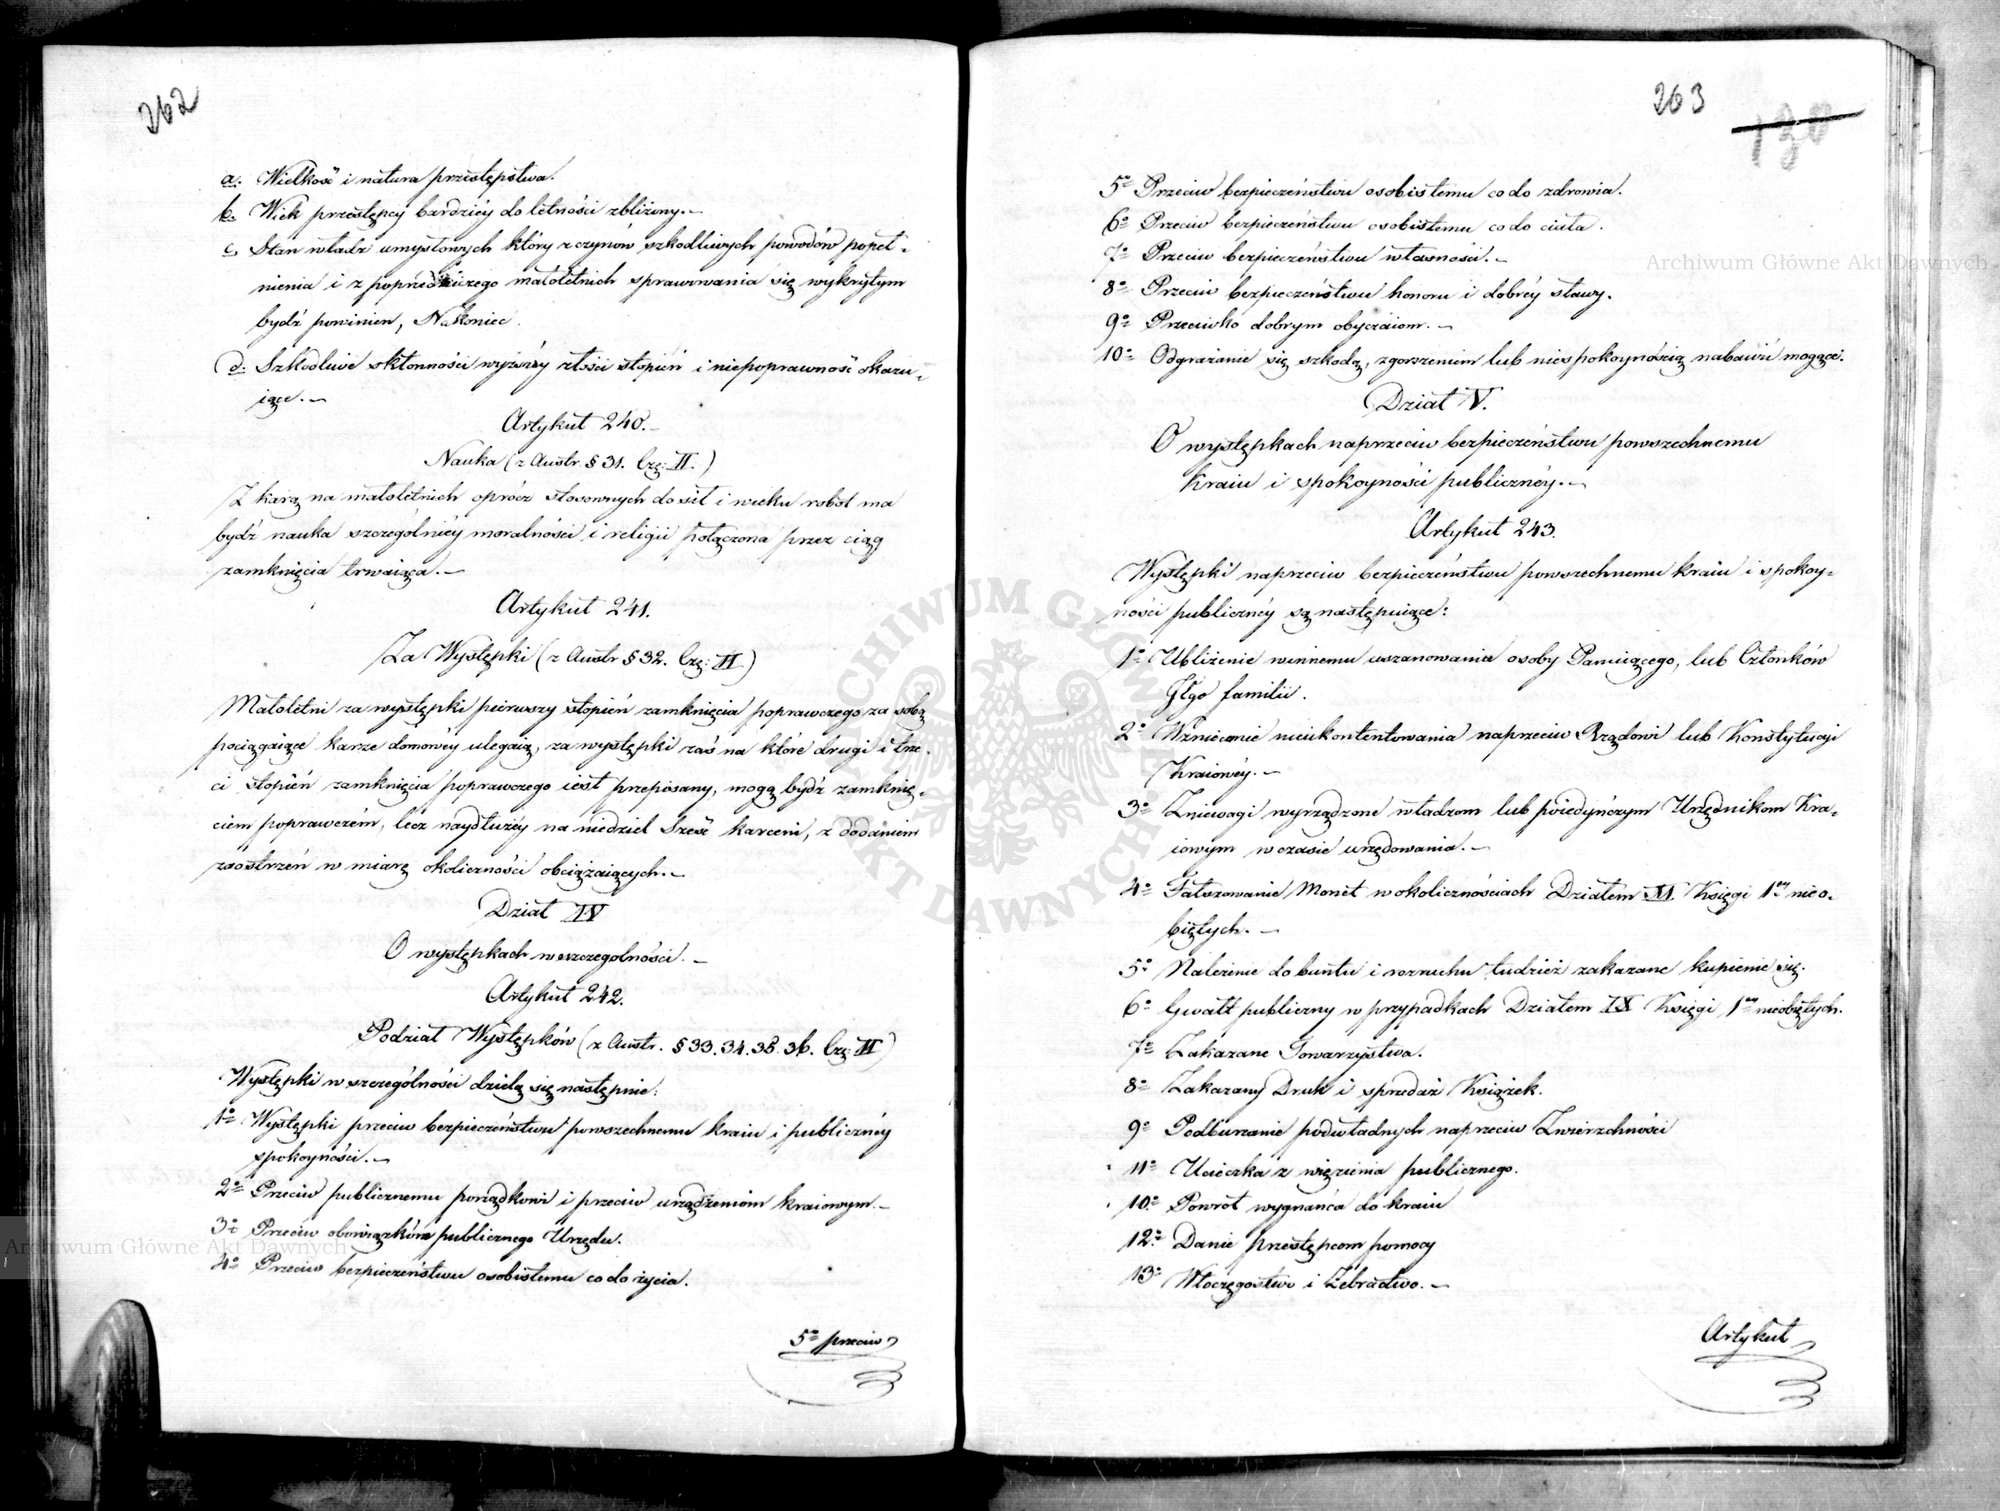 262
a. Wielkość i natura przestępstwa.
b. Wiek przestępcy bardziéy do letności zbliżony.—
c. Stan władz umysłowych który z czynów szkodliwych powodów popeł-
nienia i z poprzedniczego małoletnich sprawowania się wykrytym
bydź powinien, Nakoniec.
d. Szkodliwe skłonności wyższéy złości stopień i niepoprawność okazu-
iące.—
Artykuł 240.—
Nauka (z Austr. § 31. Czę: II.)
Z karą na małoletnich oprócz stosownych do sił i wieku robot ma
bydź nauka szczególniéy moralności i religii połączona przez ciąg
zamknięcia trwaiąca.—
Artykuł 241.
Za Występki (z Austr § 32. Czę: II.)
Małoletni za występki pierwszy stopień zamknięcia poprawczego za sobą
pociągaiące karze domowéy ulegaią, za występki zaś na które drugi i trze-
ci stopień zamknięcia poprawczego iest przepisany, mogą bydź zamknię-
ciem poprawczém, lecz naydłużéy na niedziel sześć karceni, z dodaniem
zaostrzeń w miarę okoliczności obciążaiących.—
Dział IV
O występkach w szczególności.—
Artykuł 242.
Podział Występków (z Austr. § 33. 34. 35. 36. Czę: II)
Występki w szczególności dzielą się następnie:
1o Występki przeciw bezpieczeństwu powszechnemu kraiu i publicznéy
spokoyności.—
2o Przeciw publicznemu porządkowi i przeciw urządzeniom kraiowym.—
3o Przeciw obowiązkóm publicznego Urzędu.
4o Przeciw bezpieczeństwu osobistemu co do życia.
5o przeciw
263
130
5o Przeciw bezpieczeństwu osobistemu co do zdrowia.
6o Przeciw bezpieczeństwu osobistemu co do ciała.
7o Przeciw bezpieczeństwu własności.—
8o Przeciw bezpieczeństwu honoru i dobréy sławy.
9o Przeciwko dobrym obyczaiom.—
10o Odgrażanie się szkodą, zgorszeniem lub niespokoynością nabawić mogące.
Dział V.
O występkach naprzeciw bezpieczeństwu powszechnemu
kraiu i spokoyności publicznéy.—
Artykuł 243.
Występki naprzeciw bezpieczeństwu powszechnemu kraiu i spokoy-
ności publicznéy są następuiące:
1o Ubliżenie winnemu uszanowaniu osoby Panuiącego, lub Członków
Jego familii.
2o Wzniecanie nieukontentowania naprzeciw Rządowi lub Konstytucyi
Kraiowéy.—
3o Zniewagi wyrządzone władzom lub poiedyńczym Urzędnikom Kra-
iowym w czasie urzędowania.—
4o Fałszowanie Monét w okolicznościach Działém XI. Księgi 1éy nieo-
biętych.—
5o Należenie do buntu i rozruchu tudzież zakazane kupienie się.
6o Gwałt publiczny w przypadkach Działem IX Księgi 1éy nieobiętych.
7o Zakazane Towarzystwa.
8o Zakazany Druk i sprzedaż Książek.
9o Podburzanie podwładnych naprzeciw Zwierzchności
11o Ucieczka z więzienia publicznego.
10o Powrót wygnańca do kraiu
12o Danie przestępcom pomocy
13o Włoczęgostwo i Żebractwo.—
Artykuł
Archiwum Główne Akt Dawnych
Archiwum Główne Akt Dawnych
ARCHIWUM GŁÓWNE AKT DAWNYCH